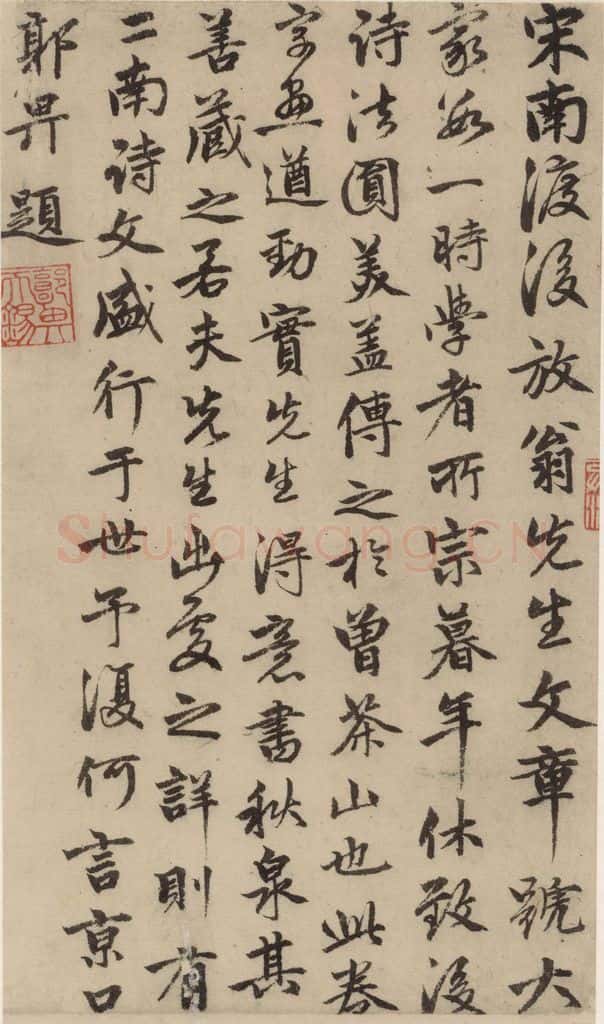 宋南渡後放翁先生文章號大
家數一時學者所宗暮年休致後
詩法圓美蓋傳之於曾茶山也此卷
字畫遒勁實先生得意書秋泉其
善藏之若夫先生出處之詳則有
二南詩文盛行于世予復何言京口
郭畀題
Shufawang.CN